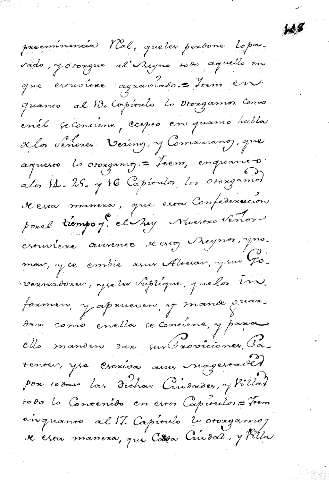 148
preeminencia Rl, que les perdone lo pa-
sado, y otorgue al Reyno todo aquello en
que estuviere agraviado.= Item en
quanto al 13 Capitulo lo otorgamos como
en él se contiene, ecepto en quanto habla
a los Señores Veriny, y Comarcanos, que
aquesto lo otorgamos.= Item, en quanto
a los 14. 25. y 16 Capitulos, los otorgamos
de esta manera, que esta Confederacion
por el tiempo q.e el Rey Nuestro Señor
estuviere ausente de estos Reynos, y no
mas, y se embie a su Alteza, y sus Go-
vernadores, y se les suplique, que los in
formen, y aprueven, y mande guar-
dar como en ella se contiene, y para
ello manden dar sus Provisiones, Pa-
tentes, y se escriva a sus Magestades
por todas las dichas Ciudades, y Villas
todo lo Contenido en estos Capitulos = Item
en quanto al 17. Capitulo lo otorgamos
de esta manera, que Cada Ciudad, y Villa